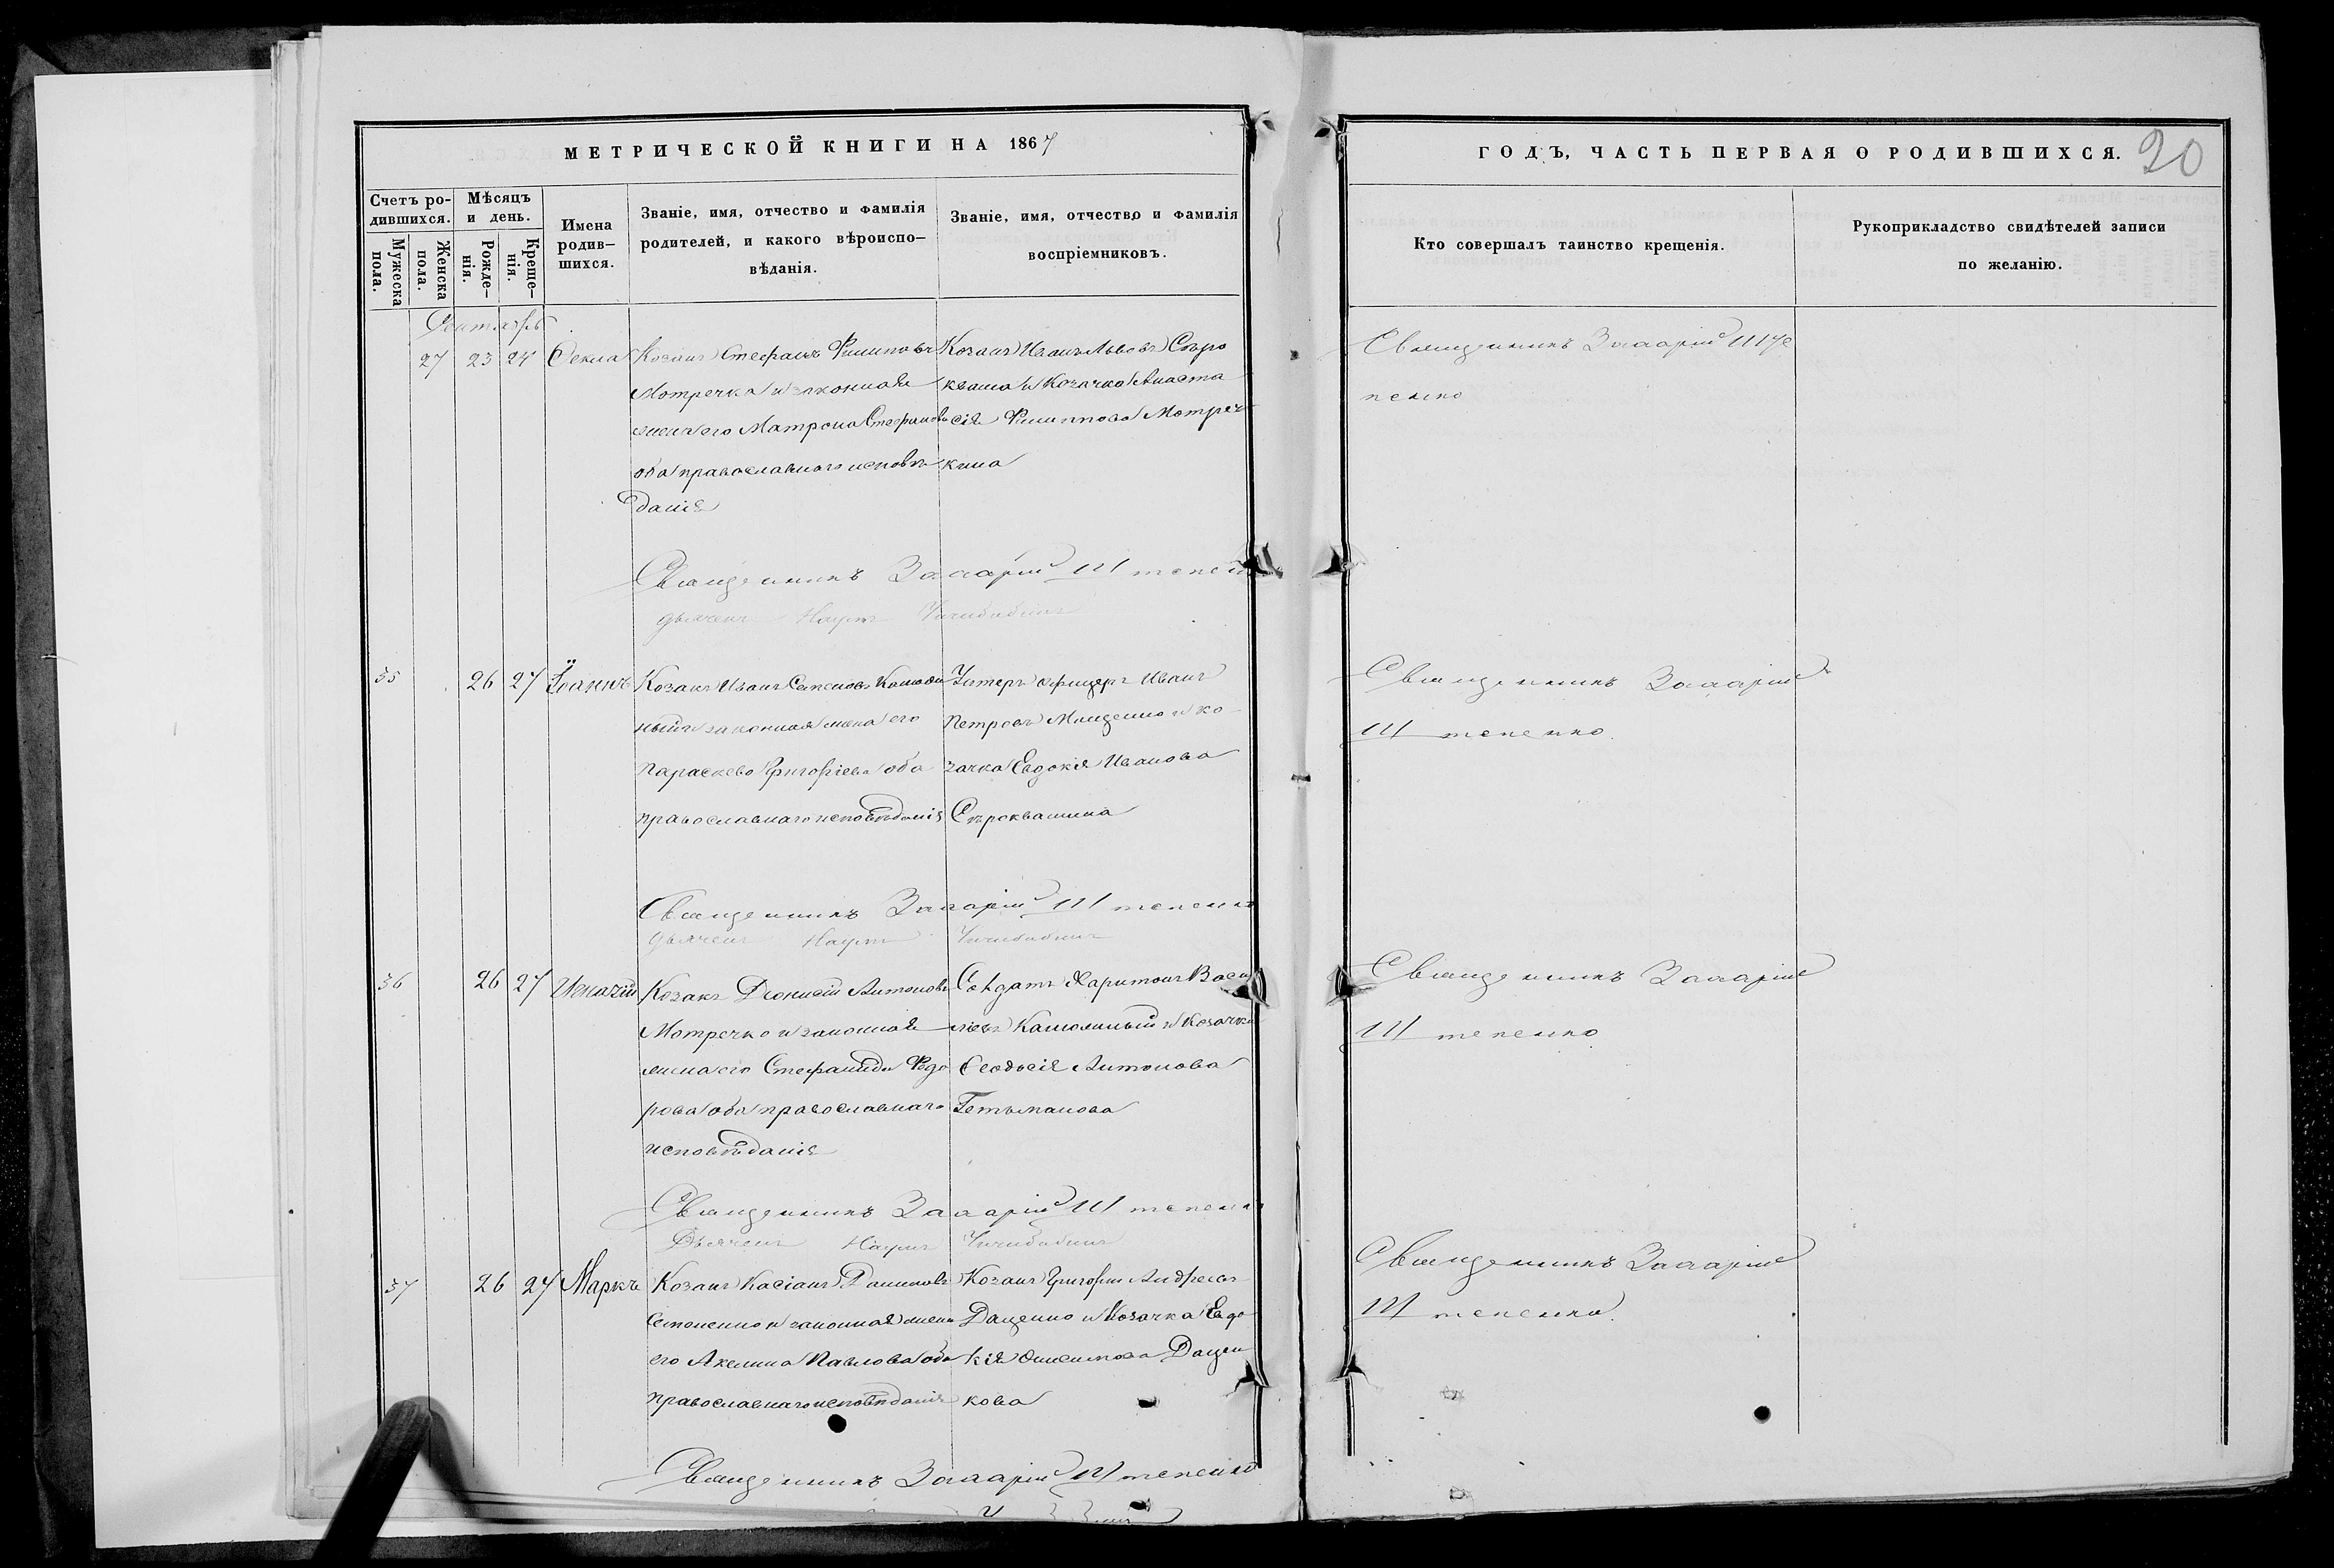 МЕТРИЧЕСКОЙ КНИГИ НА 1867
Счетъ ро-
дившихся.
Мужеска
пола.
Женска
пола.
Мѣсяцъ
и день.
Рожде-
нія.
Креще-
нія.
Имена
родив-
шихся.
Званіе, имя, отчество и фамилія
родителей, и какого вѣроиспо-
вѣданія.
Званіе, имя, отчество и фамилія
воспріемниковъ.
Сентябрь
27 23 24 Ѳекла
Козакъ Стефанъ Филиповъ
Мотречка и законная
жена его Матрона Стефанова
оба православнаго исповѣ
данія
Козакъ Иванъ Львовъ Сыро
кваша и Козачка Анаста
сія Филиппова Мотреч
кина
Священникъ Захарій Штепенко
дьячекъ Наумъ Чичибабинъ
35 26 27 Іоаннъ
Козакъ Иванъ Семеновъ
ный и законная жена его
Параскева Григоріева оба
православнаго исповѣданія
Унтеръ офицеръ Иванъ
Петровъ Мищенко и ко
зачка Евдокія Иванова
Сыроквашина
Священникъ Захарій Штепенко
дьячекъ Наумъ Чичибабинъ
36 26 27 Игнатій
Козакъ Діонисій Антоновъ
Мотречко и законная
жена его Стефанида Фedo
рова оба православнаго
исповѣданія
Солдатъ Харитонъ Васи
ліевъ и Козачка
Ѳеодосія Антонова
Гетьманова
Священникъ Захарій Штепенко
Дьячекъ Наумъ Чичибабинъ
37 26 27 Маркъ
Козакъ Касіанъ Даниловъ
Семененко и законная жена
его Акелина Павлова оба
православнаго исповѣданія
Козакъ Григорій Андреевъ
Даценко и Козачка Евдо
кія Онисимова Дацен
кова
Священникъ Захарій Штепенко
ГОДЪ, ЧАСТЬ ПЕРВАЯ О РОДИВШИХСЯ.
20
Кто совершалъ таинство крещенія.
Рукоприкладство свидѣтелей записи
по желанію.
Священникъ Захарій Ште
пенко
Священникъ Захарій
Штепенко.
Священникъ Захарій
Штепенко
Священникъ Захарій
Штепенко.